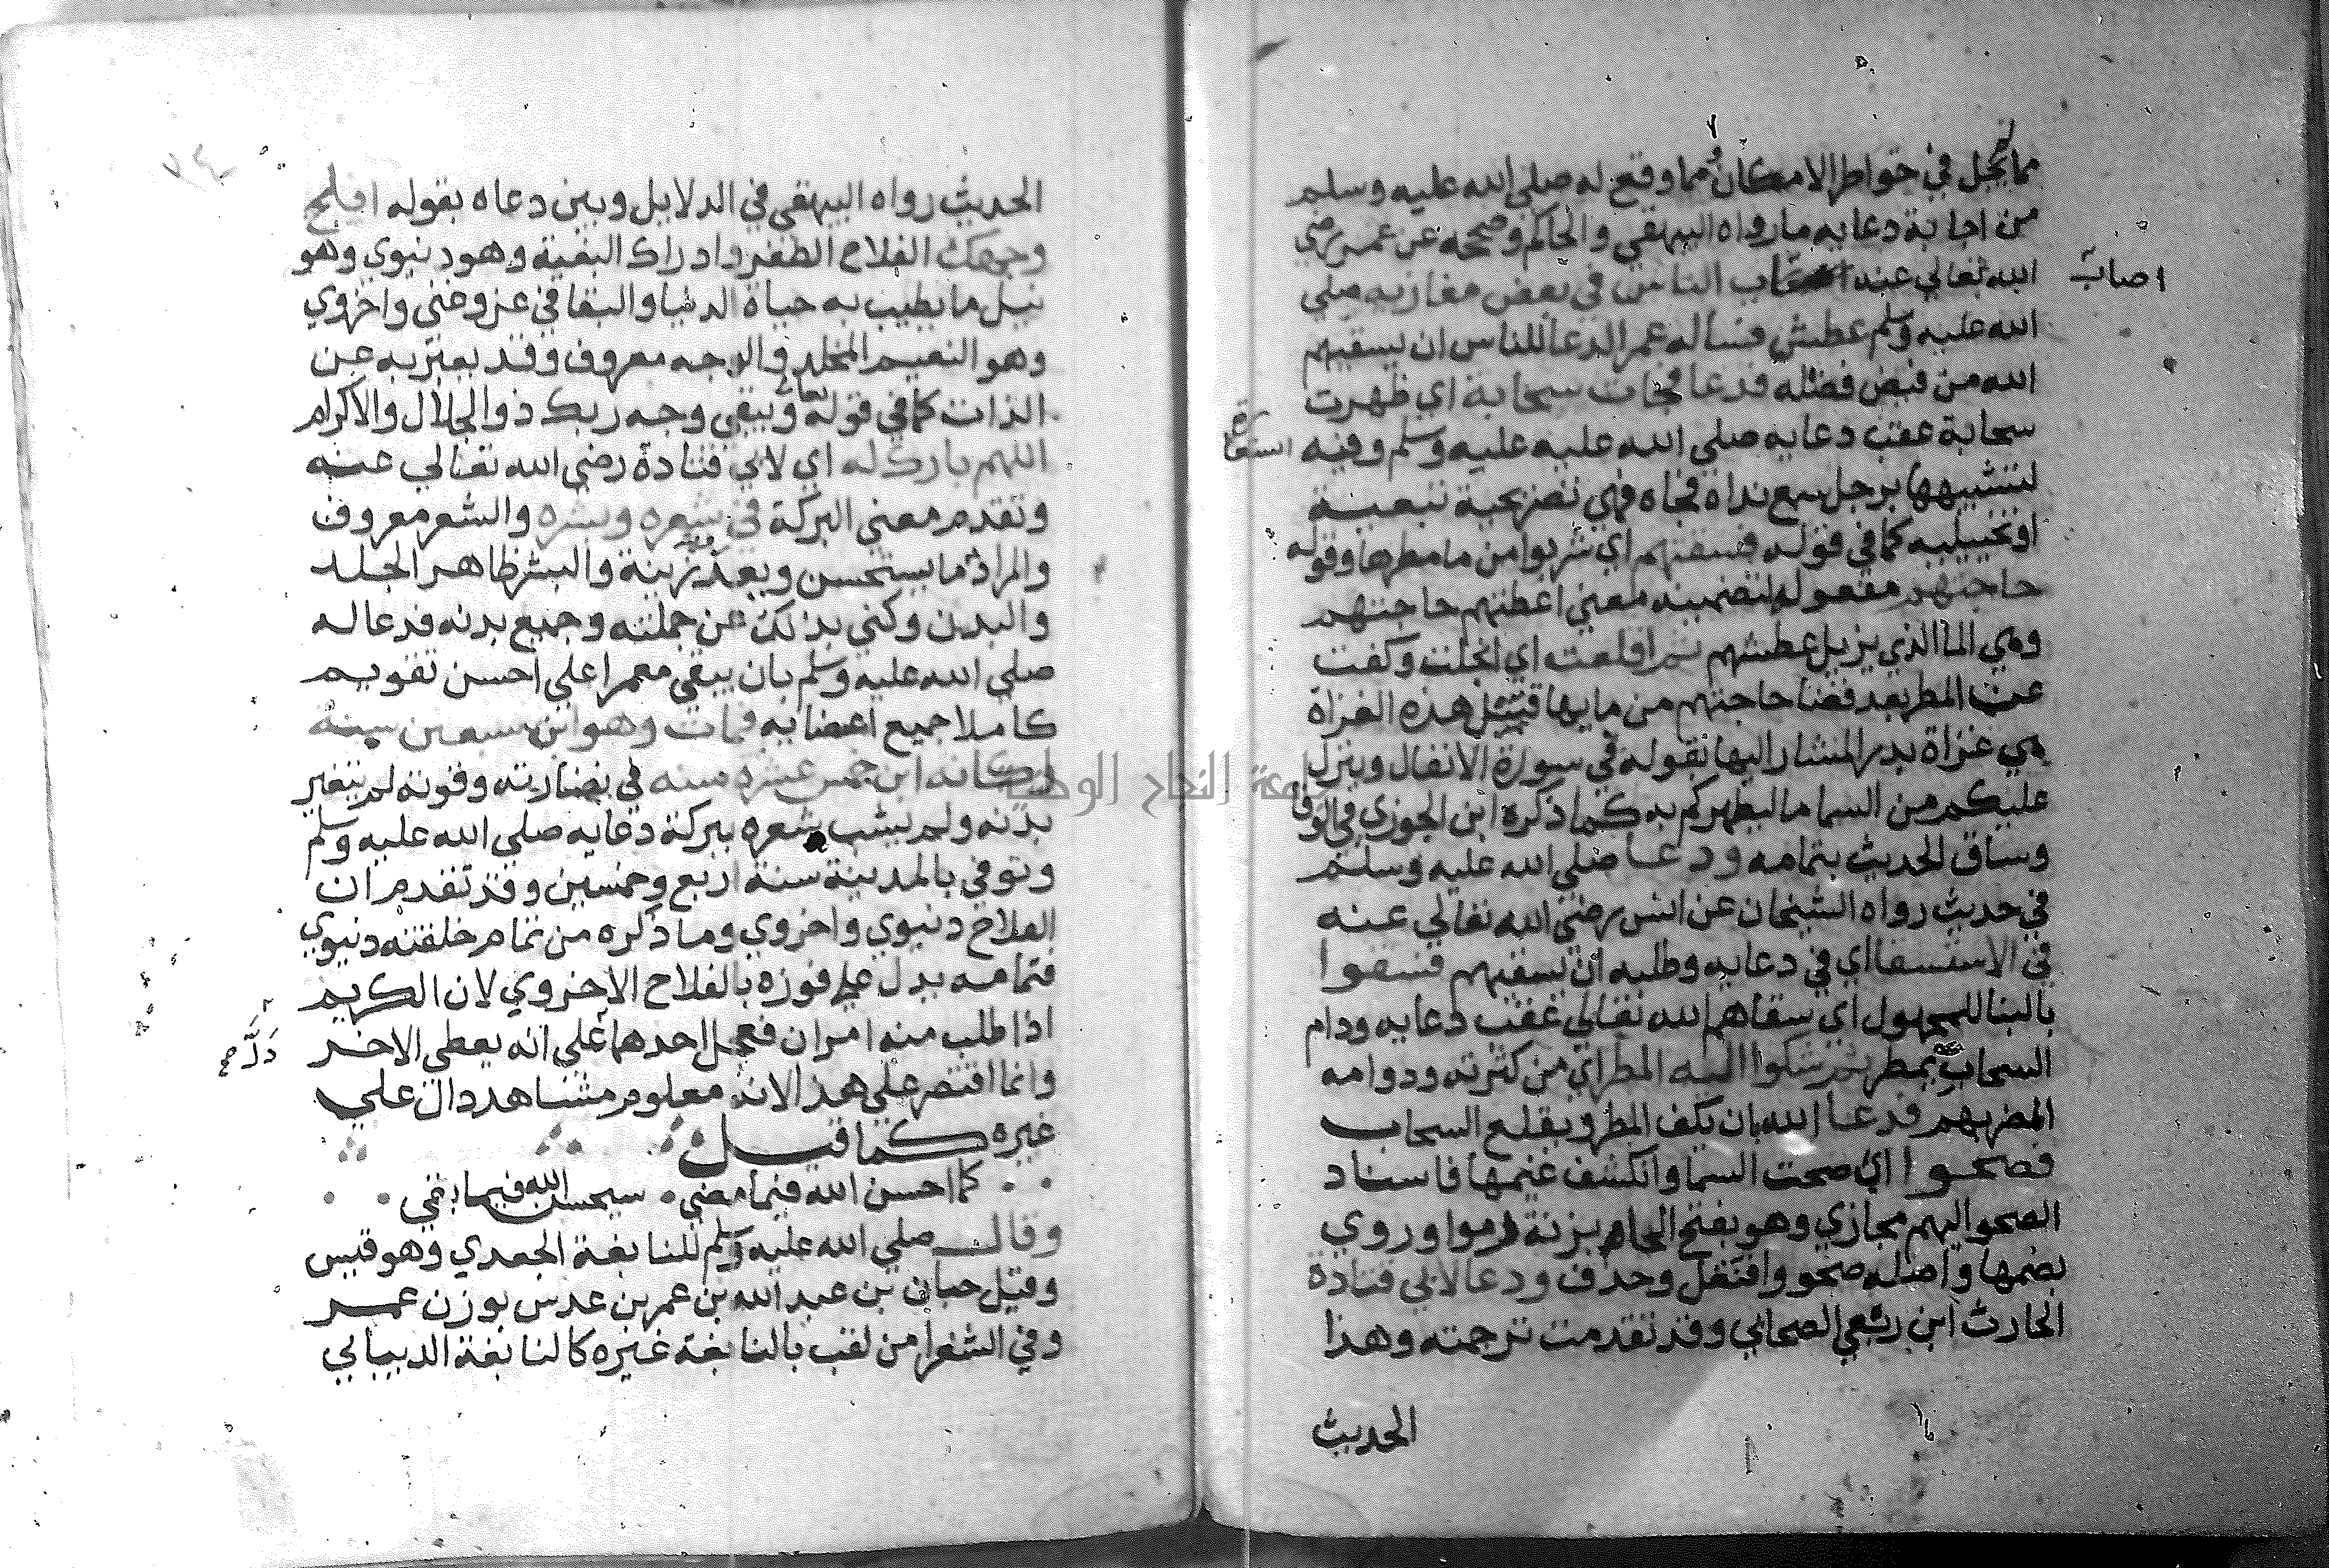 مما يحل في خواطر الامكان ومما وقع له صلي الله عليه وسلم
من اجابة دعايه مارواه البيهقي والحاكم وصححه عن عمر رضي
الله تعالي عنه الناس في بعض مغازيه صلي
اصاب
الله عليه وسلم عطش فساله عمر الدعا للناس ان يسقيهم
الله من فيض فضله فدعا فجات سحابة اي ظهرت
سحابة عقب دعايه صلي الله عليه عليه وسلم وفيه استعارة
لتشبيهها برجل سمع نداه فجاه فهي تصريحية تبعية
او تخييليه كما في قوله فسقتهم اي شربوا من ما مطرها وقوله
حاجتهم مفعوله لتضمينه معني اعطتهم حاجتهم
وهي الما الذي يزيل عطشهم ثم اقلعت اي انجلت وكفت
عن المطر بعد قضا حاجتهم من مايها قيل هذه الغزاة
هي غزاة بدر المشار اليها بقوله في سورة الانفال وينزل
عليكم من السما ما ليطهركم به كما ذكره ابن الجوزي في الوفا
وساق الحديث بتمامه ودعا صلي الله عليه وسلم
في حديث رواه الشيخان عن انس رضي الله تعالي عنه
في الاستسقا اي في دعايه وطلبه ان يسقيهم فسقوا
بالبنا للمجهول اي سقاهم الله تعالي عقب دعايه ودام
السحاب يمطر ثم شكوا اليه المطر اي من كثرته ودوامه
المضر بهم فدعا الله بان يكف المطر ويقلع السحاب
فصحوا اي صحت السما وانكشف غيمها فاسناد
الصحو اليهم مجازي وهو بفتح الحا بزنة رموا وروي
بضمها واصله صحووا فنقل وحذف ودعا لابي قتادة
الحارث ابن ربعي الصحابي وقد تقدمت ترجمته وهذا
الحديث
٧٤
الحديث رواه البيهقي في الدلايل وبين دعاه بقوله افلح
وجهك الفلاح الظفر وادراك البغية وهو دنيوي وهو
نيل ما يطيب به حياة الدنيا والبقا في عز وغني واخروي
وهو النعيم المخلد والوجه معروف وقد يعبر به عن
الذات كما في قوله تعالي ويبقي وجه ربك ذو الجلال والاكرام
اللهم بارك له اي لابي قتادة رضي الله تعالي عنه
وتقدم معني البركة في شعره وبشره والشعر معروف
والمراد ما يستحسن ويعد زينة والبشر ظاهر الجلد
والبدن وكني بذلك عن جملته وجميع بدنه فدعا له
صلي الله عليه وسلم بان يبقي معمرا علي احسن تقويم
كاملا جميع اعضايه فمات وهو ابن سبعين سنة
وكانه ابن خمس عشرة سنه في نضارته وقوته لم يتغير
بدنه ولم يشب شعره ببركة دعايه صلي الله عليه وسلم
وتوفي بالمدينة سنة اربع وخمسين وقد تقدم ان
الفلاح دنيوي واخروي وما ذكره من تمام خلقته دنيوي
فتمامه يدل علي فوزه بالفلاح الاخروي لان الكريم
اذا طلب منه امران فعجل احدهما علي انه يعطي الاخر
دلّ صح
وانما اقتصر علي هذا لانه معلوم مشاهد دال علي
غيره كما قيل
كما احسن الله فيما مضي سيحسن الله فيما بقي
وقال صلي الله عليه وسلم للنابغة الجعدي وهو قيس
وقيل حبان بن عبد الله بن عمر بن عدس بوزن عمر
وفي الشعرا من لقب بالنابغة غيره كالنابغة الدبيالي
جامعة النجاح الوطنية